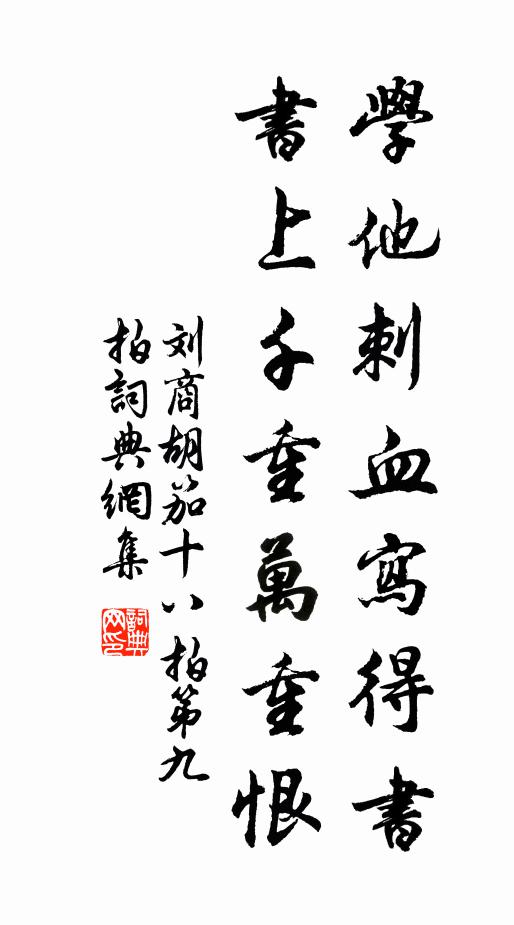 學他刺血寫得書
書上千重萬重恨
刘商胡笳十八拍第九
拍詞典網集
詞典网印